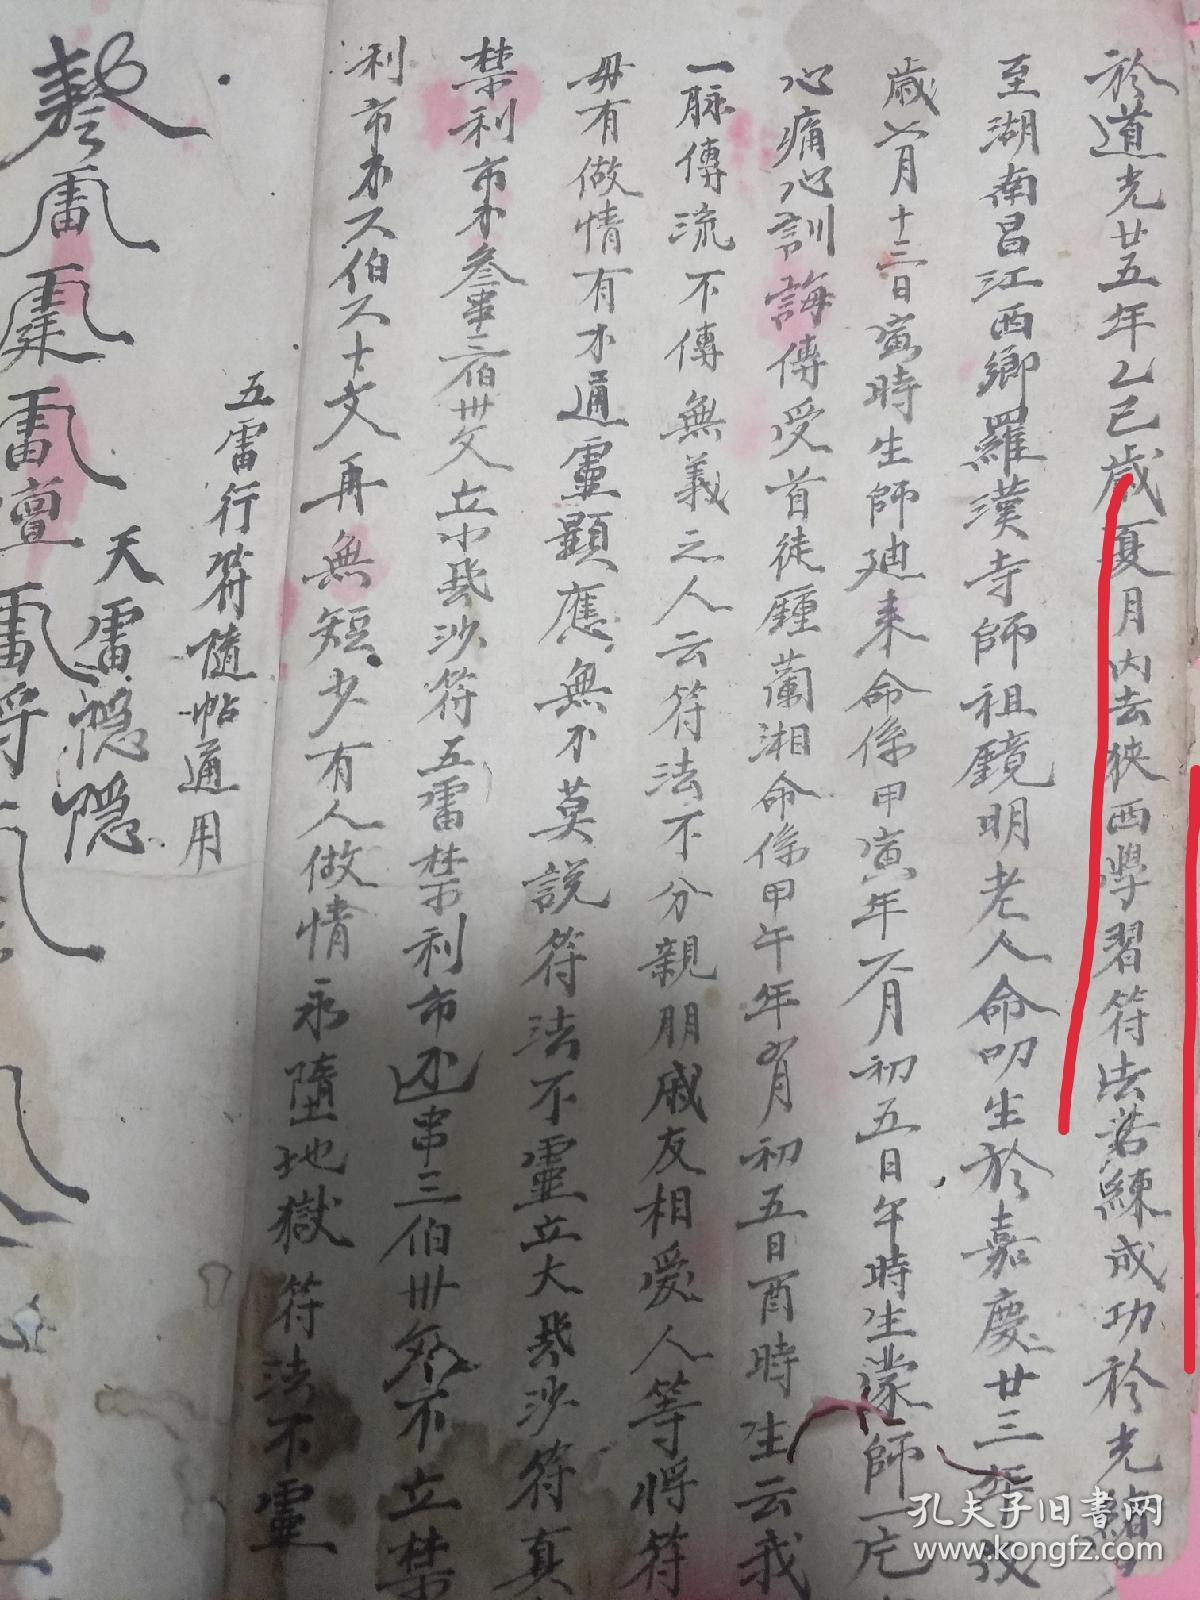 於道光廿五年乙巳歲夏月內去狹西學習符法苦練成功於光緒
至湖南昌江西鄉羅漢寺師祖鏡明老人命叨生於嘉慶廿三年
歲六月十三日寅時生師廸來命係甲寅年六月初五日午時生蒙師一片
心痛心訓誨傳受首徒鍾蘭湘命係甲午年 月初五日酉時生云我
一脉傳流不傳無義之人云符法不分親朋戚友相爱人等將符
毋有做情有不通靈顯應無不莫說符法不靈立大飛沙符真
禁利市 叁串三伯卅文立小飛沙符五雷禁利市 串三伯卅 不立禁
利市 又伯又十文再無短少有人做情永墮地獄符法不靈
五雷行符隨帖通用
天雷隱隱
孔夫子旧书网
www.kongfz.com